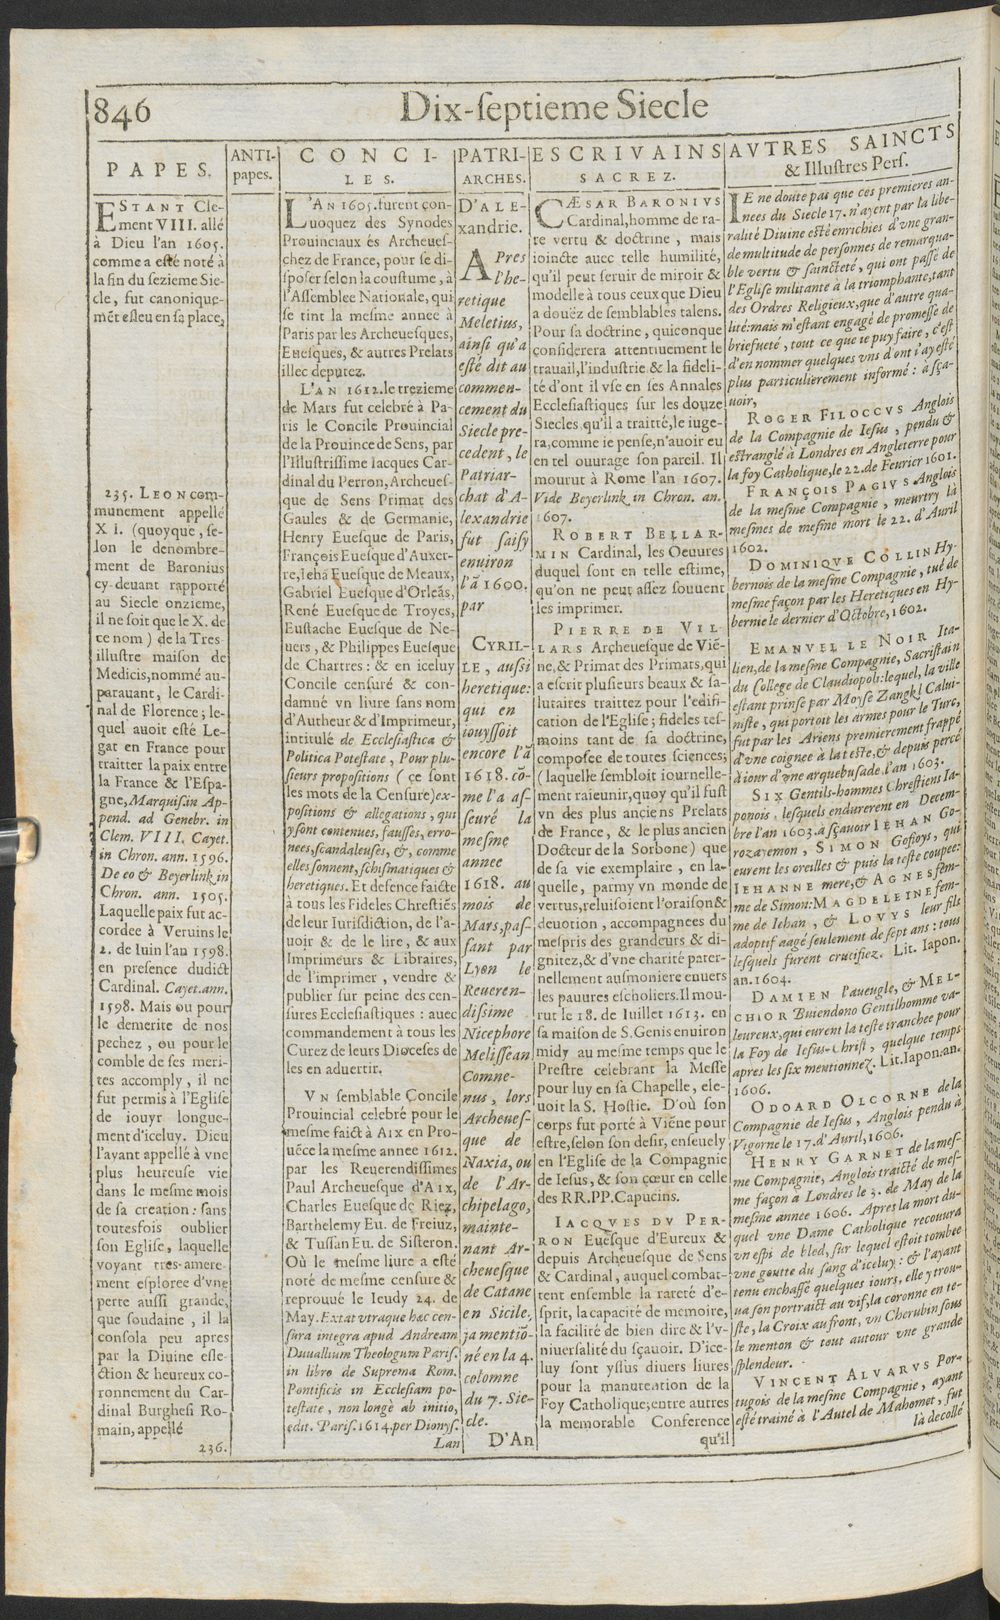 846
Dix-ſeptieme Siecle
PAPES.
ESTANT Cle-
ment VIII. allé
à Dieu l'an 1605.
comme a eſté noté à
la fin du ſezieme Sie-
cle, fut canonique-
mẽt eſleu en ſa place,
235. LEON com-
munement appellé
XI. (quoyque, ſe-
lon le denombre-
ment de Baronius
cy-deuant rapporté
au Siecle onzieme,
il ne ſoit que le X. de
ce nom) de la Tres-
illuſtre maiſon de
Medicis, nommé au-
parauant, le Cardi-
nal de Florence; le-
quel auoit eſté Le-
gat en France pour
traitter la paix entre
la France & l'Eſpa-
gne, Marquiſ. in Ap-
pend. ad Genebr. in
Clem. VIII. Cayet.
in Chron. ann. 1596.
De eo & Beyerlink in
Chron. ann. 1505.
Laquelle paix fut ac-
cordee à Veruins le
2. de Iuin l'an 1598.
en preſence dudict
Cardinal. Cayet. ann.
1598. Mais ou pour
le demerite de nos
pechez, ou pour le
comble de ſes meri-
tes accomply, il ne
fut permis à l'Egliſe
de iouyr longue-
ment d'iceluy. Dieu
l'ayant appellé à vne
plus heureuſe vie
dans le meſme mois
de ſa creation: ſans
toutesfois oublier
ſon Egliſe, laquelle
voyant tres-amere-
ment eſploree d'vne
perte auſſi grande,
que ſoudaine, il la
conſola peu apres
par la Diuine eſle-
ction & heureux co-
ronnement du Car-
dinal Burgheſi Ro-
main, appellé
236.
ANTI-
papes.
CONCI-
LES.
L'AN 1605. furent con-
uoquez des Synodes
Prouinciaux és Archeueſ-
chez de France, pour ſe di-
ſpoſer ſelon la couſtume, à
l'Aſſemblee Nationale, qui
ſe tint la meſme annee à
Paris par les Archeueſques,
Eueſques, & autres Prelats
illec deputez.
L'AN 1612. le trezieme
de Mars fut celebré à Pa-
ris le Concile Prouincial
de la Prouince de Sens, par
l'Illuſtriſſime Iacques Car-
dinal du Perron, Archeueſ-
que de Sens Primat des
Gaules & de Germanie,
Henry Eueſque de Paris,
François Eueſque d'Auxer-
re, Iehã Eueſque de Meaux,
Gabriel Eueſque d'Orleãs,
René Eueſque de Troyes,
Euſtache Eueſque de Ne-
uers, & Philippes Eueſque
de Chartres: & en iceluy
Concile cenſuré & con-
damné vn liure ſans nom
d'Autheur & d'Imprimeur,
intitulé de Eccleſiaſtica &
Politica Poteſtate, Pour plu-
ſieurs propoſitions (ce ſont
les mots de la Cenſure) ex-
poſitions & allegations, qui
y ſont contenues, fauſſes, erro-
nees, ſcandaleuſes, &, comme
elles ſonnent, ſchiſmatiques &
heretiques. Et defence faicte
à tous les Fideles Chreſtiẽs
de leur Iuriſdiction, de l'a-
uoir & de le lire, & aux
Imprimeurs & Libraires,
de l'imprimer, vendre &
publier ſur peine des cen-
ſures Eccleſiaſtiques: auec
commandement à tous les
Curez de leurs Dioceſes de
les en aduertir.
VN ſemblable Concile
Prouincial celebré pour le
meſme faict à AIX en Pro-
uẽce la meſme annee 1612.
par les Reuerendiſſimes
Paul Archeueſque d'AIX,
Charles Eueſque de Riez,
Barthelemy Eu. de Freiuz,
& Tuſſan Eu. de Siſteron.
Où le meſme liure a eſté
noté de meſme cenſure &
reprouué le Ieudy 24. de
May. Extat vtraque hac cen-
ſura integra apud Andream
Duuallium Theologum Pariſ.
in libro de Suprema Rom.
Pontificis in Eccleſiam po-
teſtate, non longè ab initio,
edit. Pariſ. 1614. per Dionyſ.
Lan
PATRI-
ARCHES.
D'ALE-
xandrie.
APres
l'he-
retique
Meletius,
ainſi qu'a
eſté dit au
commen-
cement du
Siecle pre-
cedent, le
Patriar-
chat d'A-
lexandrie
fut ſaiſy
enuiron
l'ã 1600.
par
CYRIL-
LE, auſſi
heretique:
qui en
iouyſſoit
encore l'ã
1618. cõ-
me l'a aſ-
ſeuré la
meſme
annee
1618. au
mois de
Mars, paſ-
ſant par
Lyon le
Reueren-
diſſime
Nicephore
Meliſſean
Comne-
nus, lors
Archeueſ-
que de
Naxia, ou
de l'Ar-
chipelago,
mainte-
nant Ar-
cheueſque
de Catane
en Sicile,
ja mentiõ-
né en la 4.
colomne
du 7. Sie-
cle.
D'An
ESCRIVAINS
SACREZ.
CÆSAR BARONIVS
Cardinal, homme de ra-
re vertu & doctrine, mais
ioincte auec telle humilité,
qu'il peut ſeruir de miroir &
modelle à tous ceux que Dieu
a doüez de ſemblables talens.
Pour ſa doctrine, quiconque
conſiderera attentiuement le
trauail, l'induſtrie & la fideli-
té d'ont il vſe en ſes Annales
Eccleſiaſtiques ſur les douze
Siecles qu'il a traitté, le iuge-
ra, comme ie penſe, n'auoir eu
en tel ouurage ſon pareil. Il
mourut à Rome l'an 1607.
Vide Beyerlink in Chron. an.
1607.
ROBERT BELLAR-
MIN Cardinal, les Oeuures
duquel ſont en telle eſtime,
qu'on ne peut aſſez ſouuent
les imprimer.
PIERRE DE VIL-
LARS Archeueſque de Viẽ-
ne, & Primat des Primats, qui
a eſcrit pluſieurs beaux & ſa-
lutaires traittez pour l'edifi-
cation de l'Egliſe; fideles teſ-
moins tant de ſa doctrine,
compoſee de toutes ſciences;
(laquelle ſembloit iournelle-
ment raieunir, quoy qu'il fuſt
vn des plus anciens Prelats
de France, & le plus ancien
Docteur de la Sorbone) que
de ſa vie exemplaire, en la-
quelle, parmy vn monde de
vertus, reluiſoient l'oraiſon &
deuotion, accompagnees du
meſpris des grandeurs & di-
gnitez, & d'vne charité pater-
nellement auſmoniere enuers
les pauures eſcholiers. Il mou-
rut le 18. de Iuillet 1613. en
ſa maiſon de S. Genis enuiron
midy au meſme temps que le
Preſtre celebrant la Meſſe
pour luy en ſa Chapelle, ele-
uoit la S. Hoſtie. D'où ſon
corps fut porté à Viẽne pour
eſtre, ſelon ſon deſir, enſeuely
en l'Egliſe de la Compagnie
de Ieſus, & ſon cœur en celle
des RR.PP. Capucins.
IACQVES DV PER-
RON Eueſque d'Eureux &
depuis Archeueſque de Sens
& Cardinal, auquel combat-
tent enſemble la rareté d'e-
ſprit, la capacité de memoire,
la facilité de bien dire & l'v-
niuerſalité du ſçauoir. D'ice-
luy ſont yſſus diuers liures
pour la manutention de la
Foy Catholique; entre autres
la memorable Conference
qu'il
AVTRES SAINCTS
& Illuſtres Perſ.
IE ne doute pas que ces premieres an-
nees du Siecle 17. n'ayent par la libe-
ralité Diuine eſté enrichies d'vne gran-
de multitude de perſonnes de remarqua-
ble vertu & ſaincteté, qui ont paſſé de
l'Egliſe militante à la triomphante, tant
des Ordres Religieux, que d'autre qua-
lité: mais m'eſtant engagé de promeſſe de
briefueté, tout ce que ie puy faire, c'eſt
d'en nommer quelques vns d'ont i'ay eſté
plus particulierement informé: à ſça-
uoir,
ROGER FILOCCVS Anglois
de la Compagnie de Ieſus, pendu &
eſtranglé à Londres en Angleterre pour
la foy Catholique, le 22. de Feurier 1601.
FRANÇOIS PAGIVS Anglois
de la meſme Compagnie, meurtry là
meſmes de meſme mort le 22. d'Auril
1602.
DOMINIQVE COLLIN Hy-
bernois de la meſme Compagnie, tué de
meſme façon par les Heretiques en Hy-
bernie le dernier d'Octobre, 1602.
EMANVEL LE NOIR Ita-
lien, de la meſme Compagnie, Sacriſtain
du College de Claudiopoli: lequel, la ville
eſtant prinſe par Moyſe Zangkl Calui-
niſte, qui portoit les armes pour le Turc,
fut par les Ariens premierement frappé
d'vne coignee à la teſte, & depuis percé
à iour d'vne arquebuſade l'an 1603.
SIX Gentils-hommes Chreſtiens Ia-
ponois, leſquels endurerent en Decem-
bre l'an 1603. à ſçauoir IEHAN Go-
rozayemon, SIMON Gofioys, qui
eurent les oreilles & puis la teſte coupee:
IEHANNE mere, & AGNES fem-
me de Simon: MAGDELEINE fem-
me de Iehan, & LOVYS leur fils
adoptif aagé ſeulement de ſept ans: tous
leſquels furent crucifiez. Lit. Iapon.
an. 1604.
DAMIEN l'aueugle, & MEL-
CHIOR Buiendono Gentilhomme va-
leureux, qui eurent la teſte tranchee pour
la Foy de Ieſus-Chriſt, quelque temps
apres les ſix mentionnez. Lit. Iapon. an.
1606.
ODOARD OLCORNE de la
Compagnie de Ieſus, Anglois pendu à
Vigorne le 17. d'Auril, 1606.
HENRY GARNET de la meſ-
me Compagnie, Anglois traicté de meſ-
me façon à Londres le 3. de May de la
meſme annee 1606. Apres la mort du-
quel vne Dame Catholique recouura
vn eſpi de bled, ſur lequel eſtoit tombee
vne goutte du ſang d'iceluy: & l'ayant
tenu enchaſſé quelques iours, elle y trou-
ua ſon portraict au vif, la coronne en te-
ſte, la Croix au front, vn Cherubin ſous
le menton & tout autour vne grande
ſplendeur.
VINCENT ALVARVS Por-
tugois de la meſme Compagnie, ayant
eſté trainé à l'Autel de Mahomet, fut
là decollé